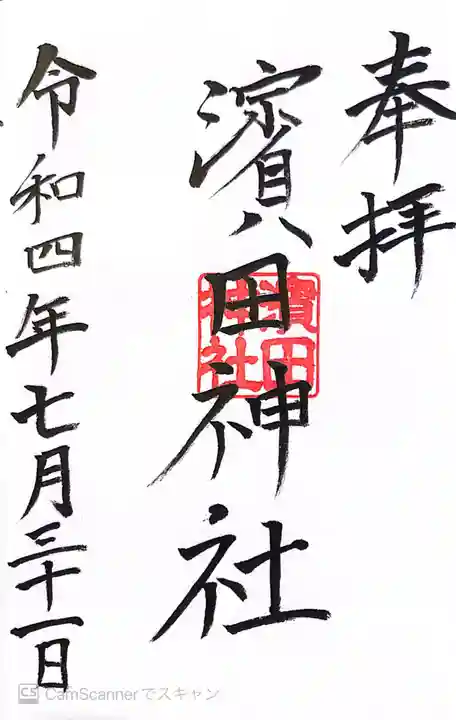 奉拝
濱田神社
濱田
神社
令和四年七月三十一日
CS CamScannerでスキャン